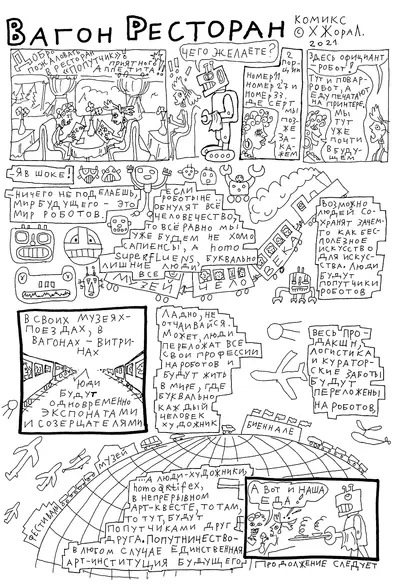 ВАГОН РЕСТОРАН
КОМИКС
© ХЖОРАЛ.
2021
ДОБРО
ПОЖАЛОВАТЬ
В РЕСТОРАН
«ПОПУТЧИК»
ПРИЯТНОГО
АППЕТИТА!
ЧЕГО ЖЕЛАЕТЕ?
2
ПОР-
ЦИИ
НОМЕР 11,
НОМЕР 27 И
НОМЕР 33,
А ДЕСЕРТ
МЫ
ПОЗ-
ЖЕ
ЗАКА-
ЖЕМ
ЗДЕСЬ ОФИЦИАНТ
- РОБОТ!
ТУТ И ПОВАР
РОБОТ, А
ЕДУ ПЕЧАТАЮТ
НА ПРИНТЕРЕ,
МЫ
ТУТ
УЖЕ
ПОЧТИ
В БУДУ-
ЩЕМ!
Я В ШОКЕ!
НИЧЕГО НЕ ПОДЕЛАЕШЬ,
МИР БУДУЩЕГО - ЭТО
МИР РОБОТОВ.
ЕСЛИ
РОБОТЫ НЕ
ОБНУЛЯТ ВСЁ
ЧЕЛОВЕЧЕСТВО,
ТО ВСЁ РАВНО МЫ
УЖЕ БУДЕМ НЕ ХОМО
САПИЕНСЫ, А HOMO
SUPERFLUENS, БУКВАЛЬНО
ЛИШНИЕ ЛЮДИ
МУЗЕЙ ЧЕЛОВЕКА
ВОЗМОЖНО
ЛЮДЕЙ СО-
ХРАНЯТ ЗАЧЕМ-
ТО КАК БЕС-
ПОЛЕЗНОЕ
ИСКУССТВО
ДЛЯ ИСКУС-
СТВА. ЛЮДИ
БУДУТ
ПОПУТЧИКИ
РОБОТОВ
В СВОИХ МУЗЕЯХ-
ПОЕЗДАХ, В
ВАГОНАХ - ВИТРИ-
НАХ
ЛЮДИ
БУДУТ
ОДНОВРЕМЕННО
ЭКСПОНАТАМИ
И СОЗЕРЦАТЕЛЯМИ
ЛАДНО, НЕ
ОТЧАИВАЙСЯ.
МОЖЕТ, ЛЮДИ
ПЕРЕЛОЖАТ ВСЕ
СВОИ ПРОФЕССИИ
НА РОБОТОВ И
БУДУТ ЖИТЬ
В МИРЕ, ГДЕ
БУКВАЛЬНО
КАЖДЫЙ
ЧЕЛОВЕК
ХУДОЖНИК
ВЕСЬ ПРО-
ДАКШН,
ЛОГИСТИКА
И КУРАТОР-
СКИЕ ЗАБОТЫ
БУДУТ
ПЕРЕЛОЖЕНЫ
НА РОБОТОВ,
ФЕСТИВАЛИ
МУЗЕЙ
БИЕННАЛЕ
А ЛЮДИ-ХУДОЖНИКИ,
HOMO ARTIFEX,
В НЕПРЕРЫВНОМ
АРТ-КВЕСТЕ, ТО ТАМ,
ТО ТУТ, БУДУТ
ПОПУТЧИКАМИ ДРУГ
ДРУГА. ПОПУТНИЧЕСТВО-
В ЛЮБОМ СЛУЧАЕ ЕДИНСТВЕННАЯ
АРТ-ИНСТИТУЦИЯ БУДУЩЕГО.
А ВОТ И НАША
ЕДА!
ПРОДОЛЖЕНИЕ СЛЕДУЕТ